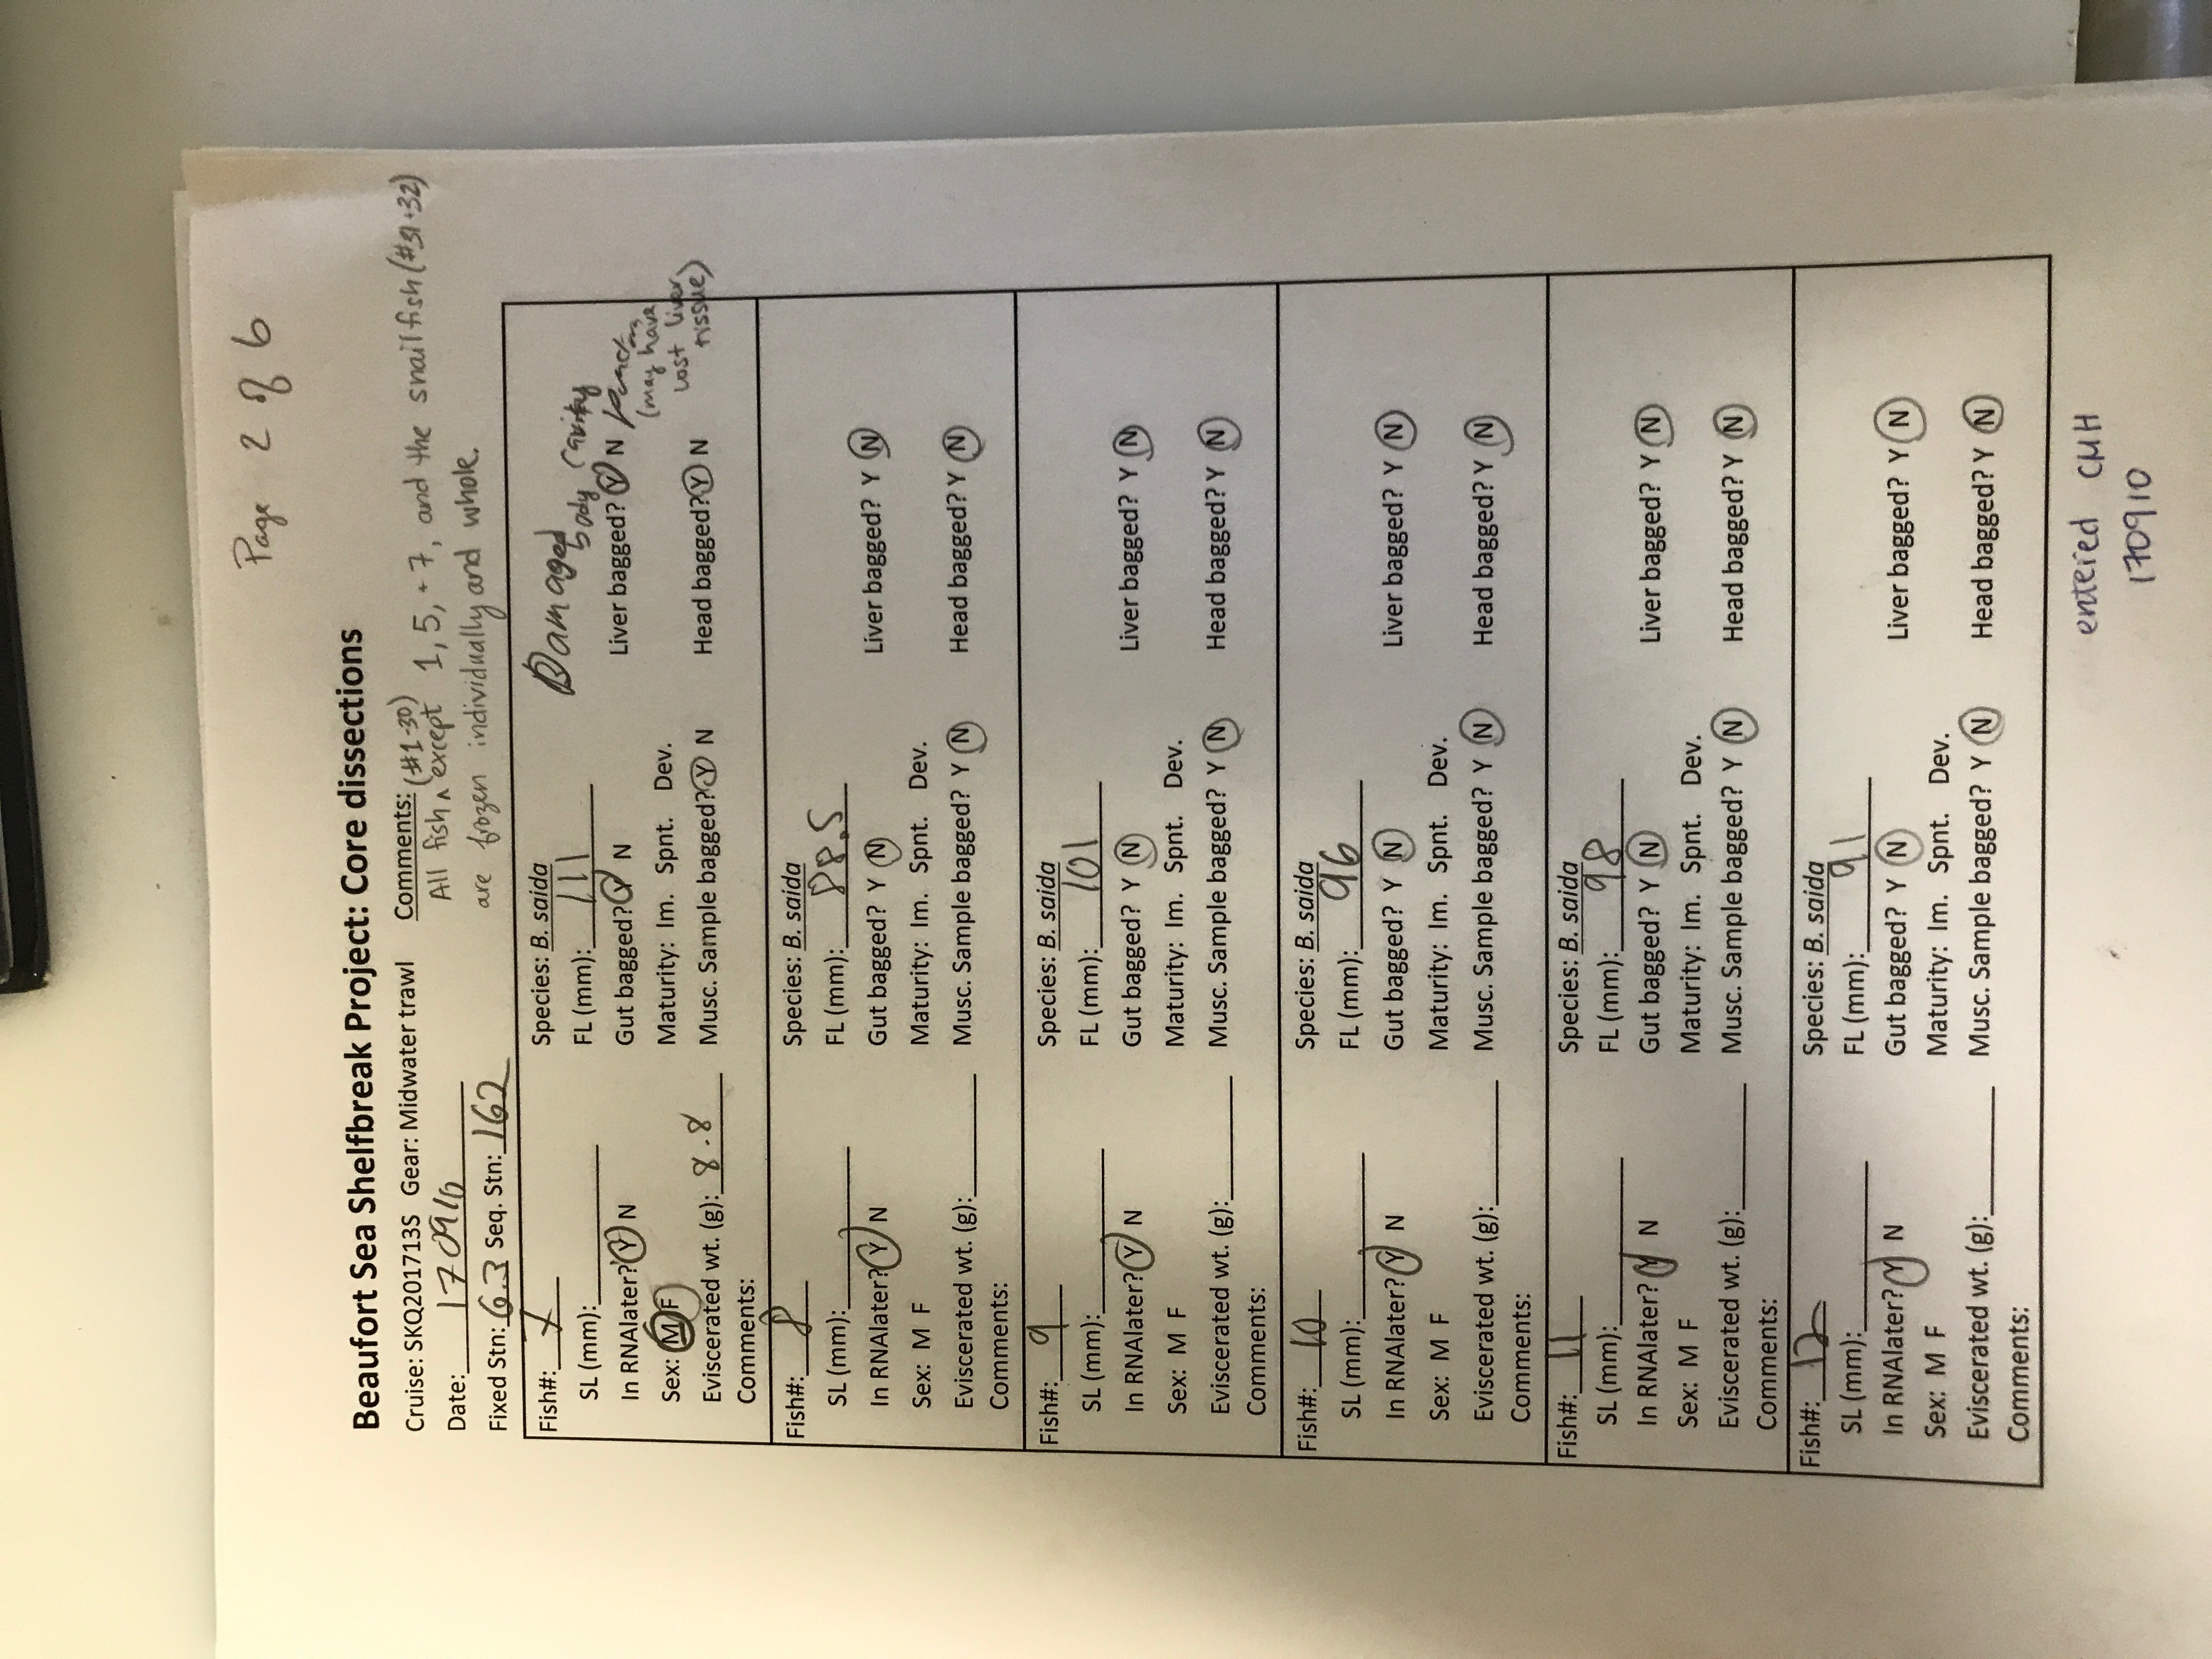 Page 2 of 6
Beaufort Sea Shelfbreak Project: Core dissections
Cruise: SKQ201713S Gear: Midwater trawl Comments: (#1-30)
Date: 170910 All fish ^ except 1, 5, + 7, and the snailfish (#31+32)
are frozen individually and whole.
Fixed Stn: 6.3 Seq. Stn: 162
Fish#: 7 Species: B. saida Damaged body cavity
SL (mm): FL (mm): 111
In RNAlater? Y N Gut bagged? Y N Liver bagged? Y N
(may have
lost liver
tissue)
Sex: M F Maturity: Im. Spnt. Dev.
Eviscerated wt. (g): 8.8 Musc. Sample bagged? Y N Head bagged? Y N
Comments:
Fish#: 8 Species: B. saida
SL (mm): FL (mm): 88.5
In RNAlater? Y N Gut bagged? Y N Liver bagged? Y N
Sex: M F Maturity: Im. Spnt. Dev.
Eviscerated wt. (g): Musc. Sample bagged? Y N Head bagged? Y N
Comments:
Fish#: 9 Species: B. saida
SL (mm): FL (mm): 101
In RNAlater? Y N Gut bagged? Y N Liver bagged? Y N
Sex: M F Maturity: Im. Spnt. Dev.
Eviscerated wt. (g): Musc. Sample bagged? Y N Head bagged? Y N
Comments:
Fish#: 10 Species: B. saida
SL (mm): FL (mm): 96
In RNAlater? Y N Gut bagged? Y N Liver bagged? Y N
Sex: M F Maturity: Im. Spnt. Dev.
Eviscerated wt. (g): Musc. Sample bagged? Y N Head bagged? Y N
Comments:
Fish#: 11 Species: B. saida
SL (mm): FL (mm): 98
In RNAlater? Y N Gut bagged? Y N Liver bagged? Y N
Sex: M F Maturity: Im. Spnt. Dev.
Eviscerated wt. (g): Musc. Sample bagged? Y N Head bagged? Y N
Comments:
Fish#: 12 Species: B. saida
SL (mm): FL (mm): 91
In RNAlater? Y N Gut bagged? Y N Liver bagged? Y N
Sex: M F Maturity: Im. Spnt. Dev.
Eviscerated wt. (g): Musc. Sample bagged? Y N Head bagged? Y N
Comments:
entered CMH
170910